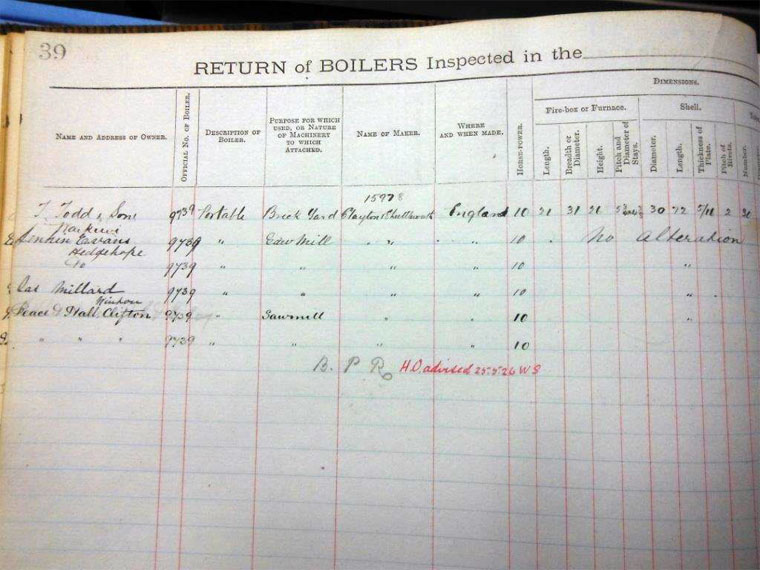 39
RETURN of BOILERS Inspected in the
DIMENSIONS.
NAME AND ADDRESS OF OWNER.
OFFICIAL NO. OF BOILER.
DESCRIPTION OF BOILER.
PURPOSE FOR WHICH USED, OR NATURE OF MACHINERY TO WHICH ATTACHED.
NAME OF MAKER.
WHERE AND WHEN MADE.
HORSE-POWER.
Fire-box or Furnace.
Shell.
Length.
Breadth or Diameter.
Height.
Pitch and Diameter of Stays.
Diameter.
Length.
Thickness of Plate.
Pitch of Rivets.
Number.
15978
T. Todd & Son 9739 Portable Brick Yard Clayton Shuttleworth England 10 21 31 21 30 72 5/16 2
9739 " Saw Mill " " " 10 No alteration
Hedgehope
Do 9739 " " " " 10 "
Jas Millard 9739 " " " " 10 "
Winton
Peace & Hall Clifton 9739 " Sawmill " " 10 "
" " " 9739 " " " " 10
B. P. R. H.O. advised 25.5.26 W S